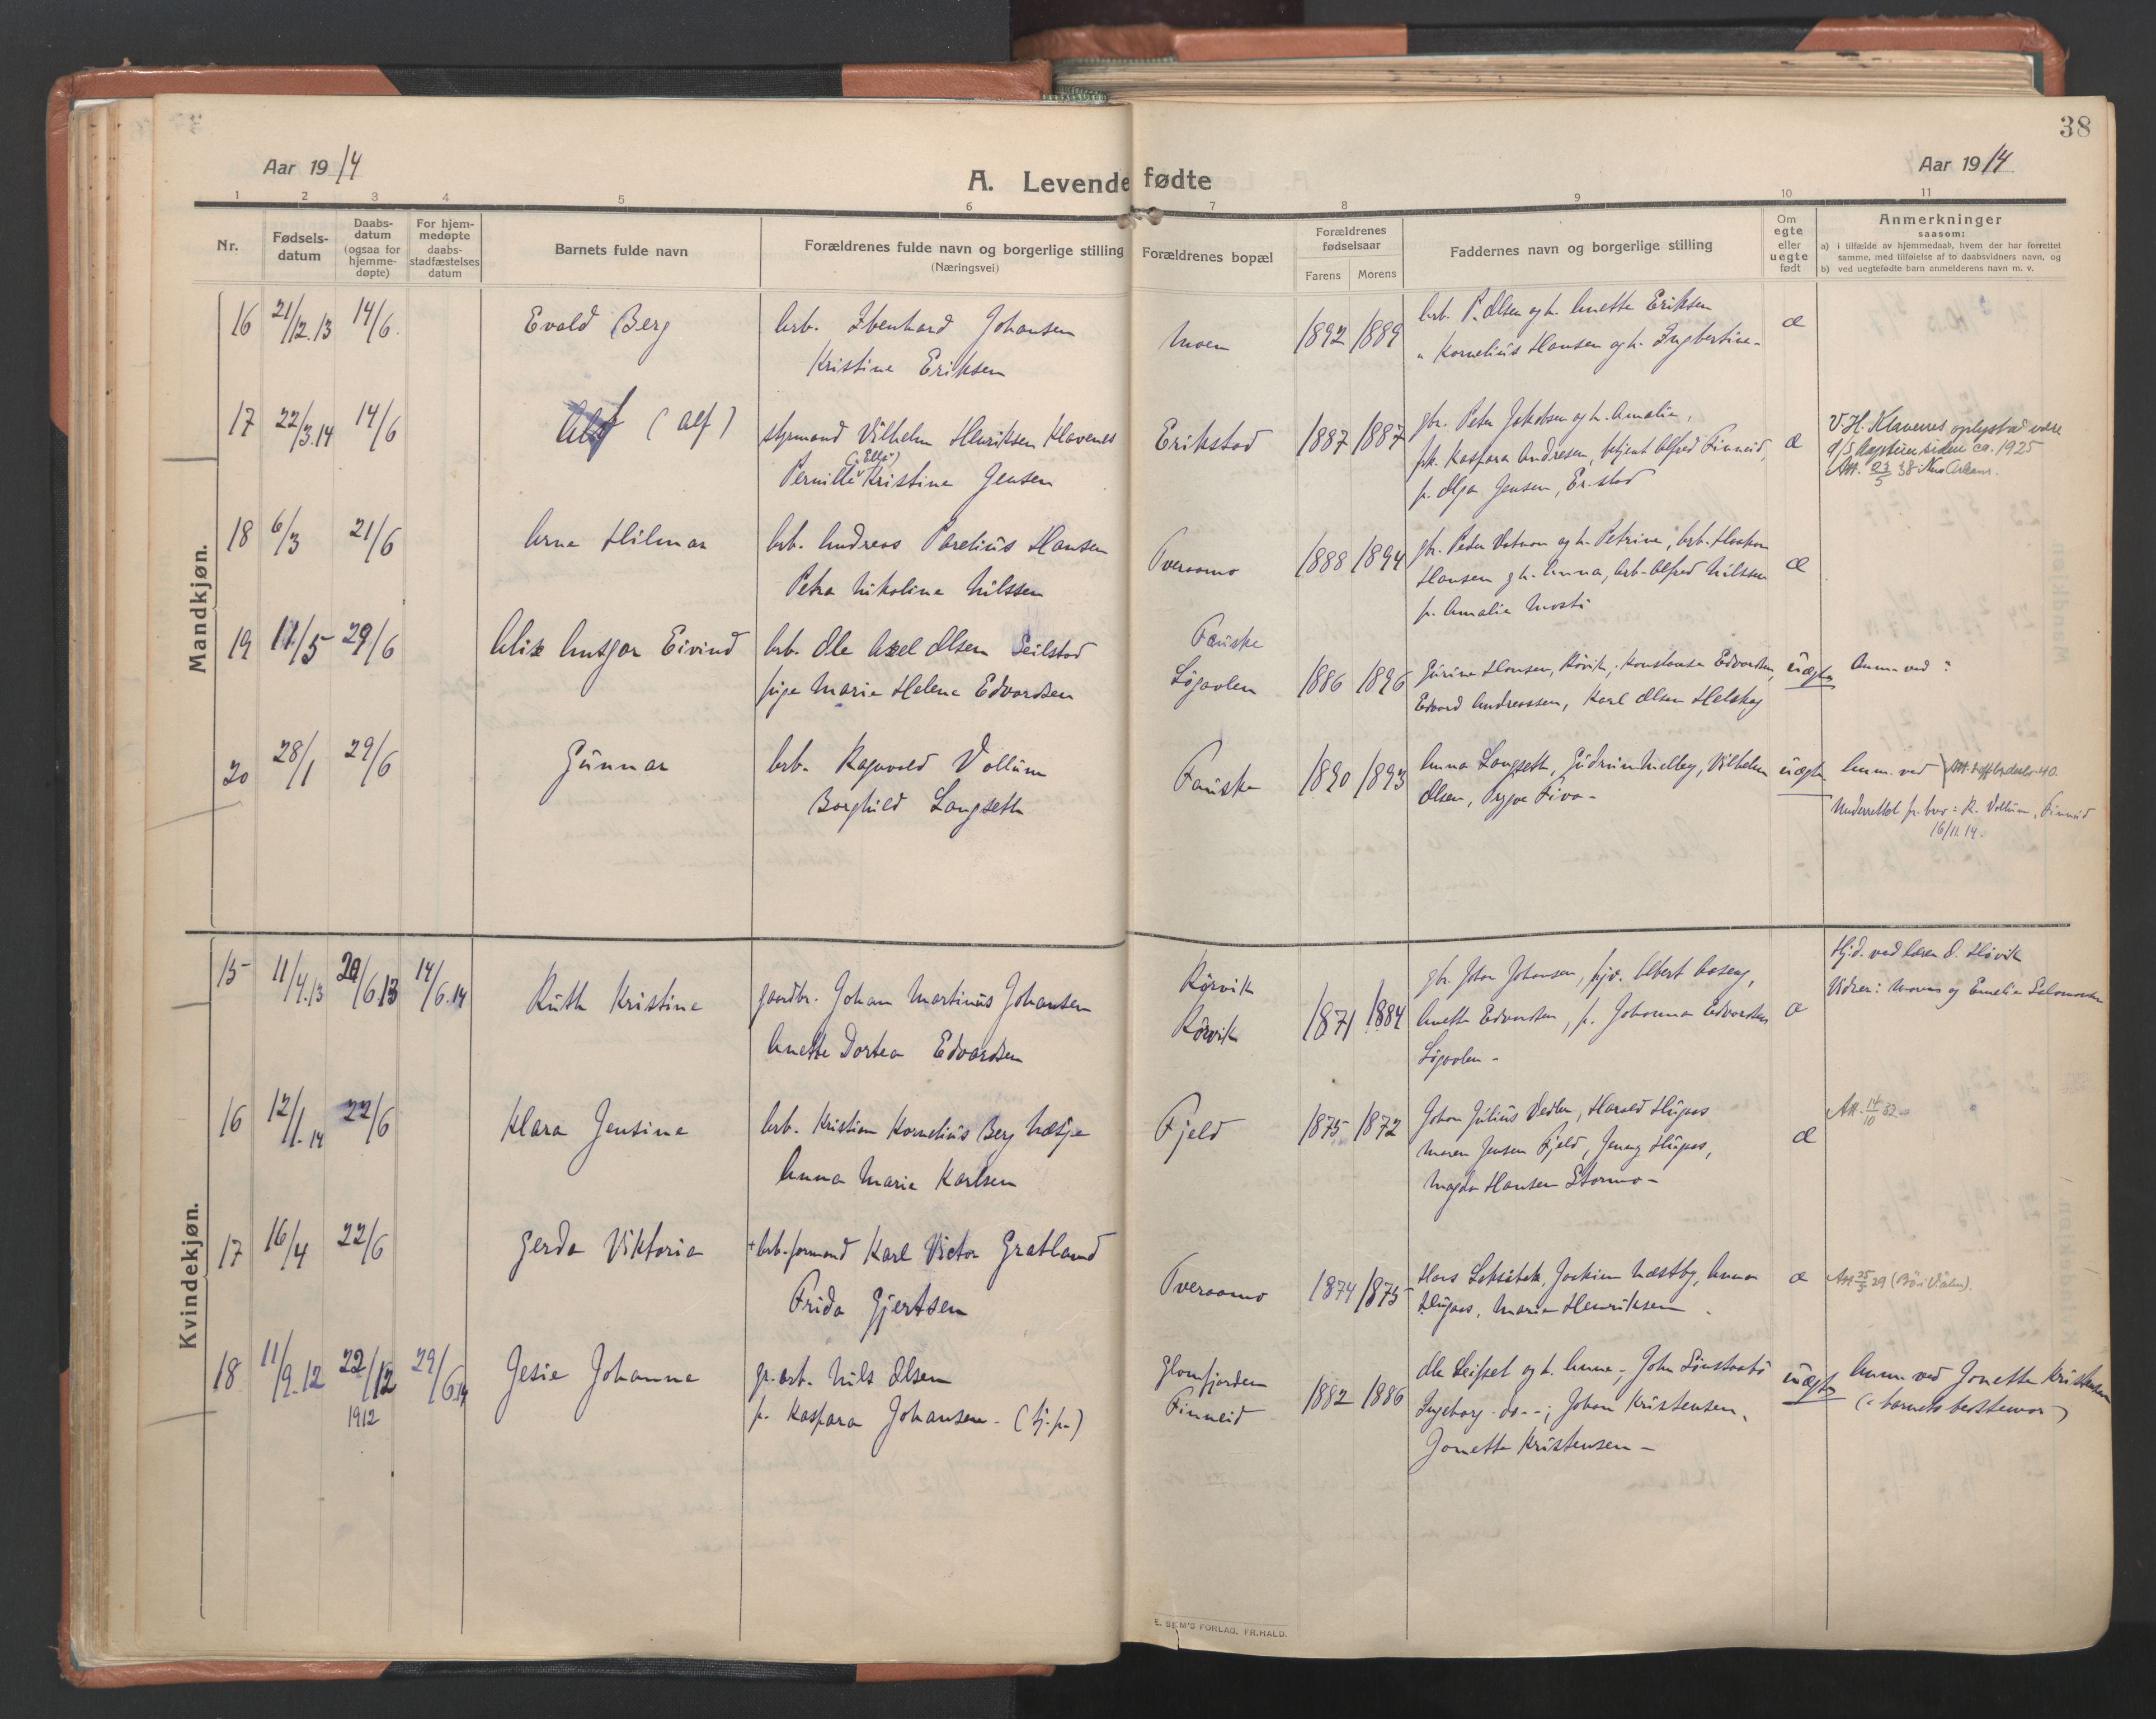 38
Aar 1914
A. Levende fødte
Aar 1914
1 2 3 4 5 6 7 8 9 10 11
Nr.
Fødsels-
datum
Daabs-
datum
(ogsaa for
hjemme-
døpte)
For hjem-
medøpte
daabs-
stadfæstelses
datum
Barnets fulde navn
Forældrenes fulde navn og borgerlige stilling
(Næringsvei)
Forældrenes bopæl
Forældrenes
fødselsaar
Farens Morens
Faddernes navn og borgerlige stilling
Om
egte
eller
uegte
født
Anmerkninger
saasom:
a) i tilfælde av hjemmedaab, hvem der har forrettet
samme, med tilføielse af to daabsvidners navn, og
b) ved uegtefødte barn anmelderens navn m. v.
Mandkjøn.
16 21/12.13 14/6. Evald Berg
Arb. Ibenhard Johansen
Kristine Eriksen
Moen
1892 1889
Arb. P. Olsen og h. Anette Eriksen
" Kornelius Hansen og h. Ingbertine -
æ
17 22/3.14 14/6 (Alf)
styrmand Vilhelm Henriksen Klavenes
("Ella")
Pernille Kristine Jensen
Erikstad
1887 1887
gbr. Peter Jakobsen og h. Amalie,
frk. Kaspara Andresen, betjent Alfred Finneid,
p. Olga Jensen, Er.stad
æ
V. H. Klavenes
siden ca. 1925
Att. 23/5 38
18 6/3 21/6 Arne Hilmar
Arb. Andreas Parelius Hansen
Petra Nikoline Nilssen
Tveraamo
1888 1894
gbr. Peder Vatnan og h. Petrine, Arb. Haakon
Hansen og h. Anna, Arb. Alfred Nilssen
p. Amalie Mosti
æ
19 11/5 29/6 Alix Ansgar Eivind
Arb. Ole Axel Olsen Seilstad
pige Marie Helene Edvardsen
Fauske
Løgavlen
1886 1896
Gurine Hansen, Røvik, Konstanse Edvardsen,
Edvard Andreassen, Karl Olsen Helskog
uægte
Anm. ved :
20 28/1 29/6 Gunnar
Arb. Ragnvald Vollum
Borghild Langseth
Fauske
1890 1893
Anna Langseth, Gudrun Melby, Vilhelm
Olsen, Trygve Fivo -
uægte
Anm. ved
Underrettet p. brev: R. Vollum, Finneid
16/11 14.
Kvindekjøn.
15 11/4.13 29/6 13 14/6.14 Ruth Kristine
gaardbr. Johan Martinus Johansen
Anette Dortea Edvardsen
Rørvik
Rørvik
1871 1884
gbr. Johan Johansen, Albert Aaseng,
Anette Edvardsen, p. Johanna Edvardsen
Løgavlen -
æ
Hjd. ved Høvik
Vidner: og Emelie Salomonsen
16 12/1.14 22/6 Klara Jensine
Arb. Kristian Kornelius Berg Næsje
Anna Marie Karlsen
Fjeld
1875 1872
Johan Julius Vedler, Harald Hugaas
Maren Jensen Fjeld, Jenny Hugaas,
Magda Hansen Stormo -
æ
Att. 14/10 32
17 16/4 22/6 Gerda Viktoria
+ Arb.formand Karl Victor Gratland
Frida Gjertsen
Tveraamo
1874 1875
Hans Joakim Næstby, Anna
Hugaas, Marie Henriksen.
æ
Att 25/5 29 (Bø i V.ålen).
18 11/9.12 22/12 1912 29/6.14 Jesie Johanne
gr.arb. Nils Olsen
p. Kaspara Johansen - (tj.p.)
Glomfjorden
Finneid
1882 1886
Ole Leifset og h. Anne -; John
Ingeborg do -; Johan Kristensen,
Jonette Kristensen -
uægte
Anm. ved Jonette Kristensen
(= barnets bestemor)
E. SEM'S FORLAG, FR.HALD.